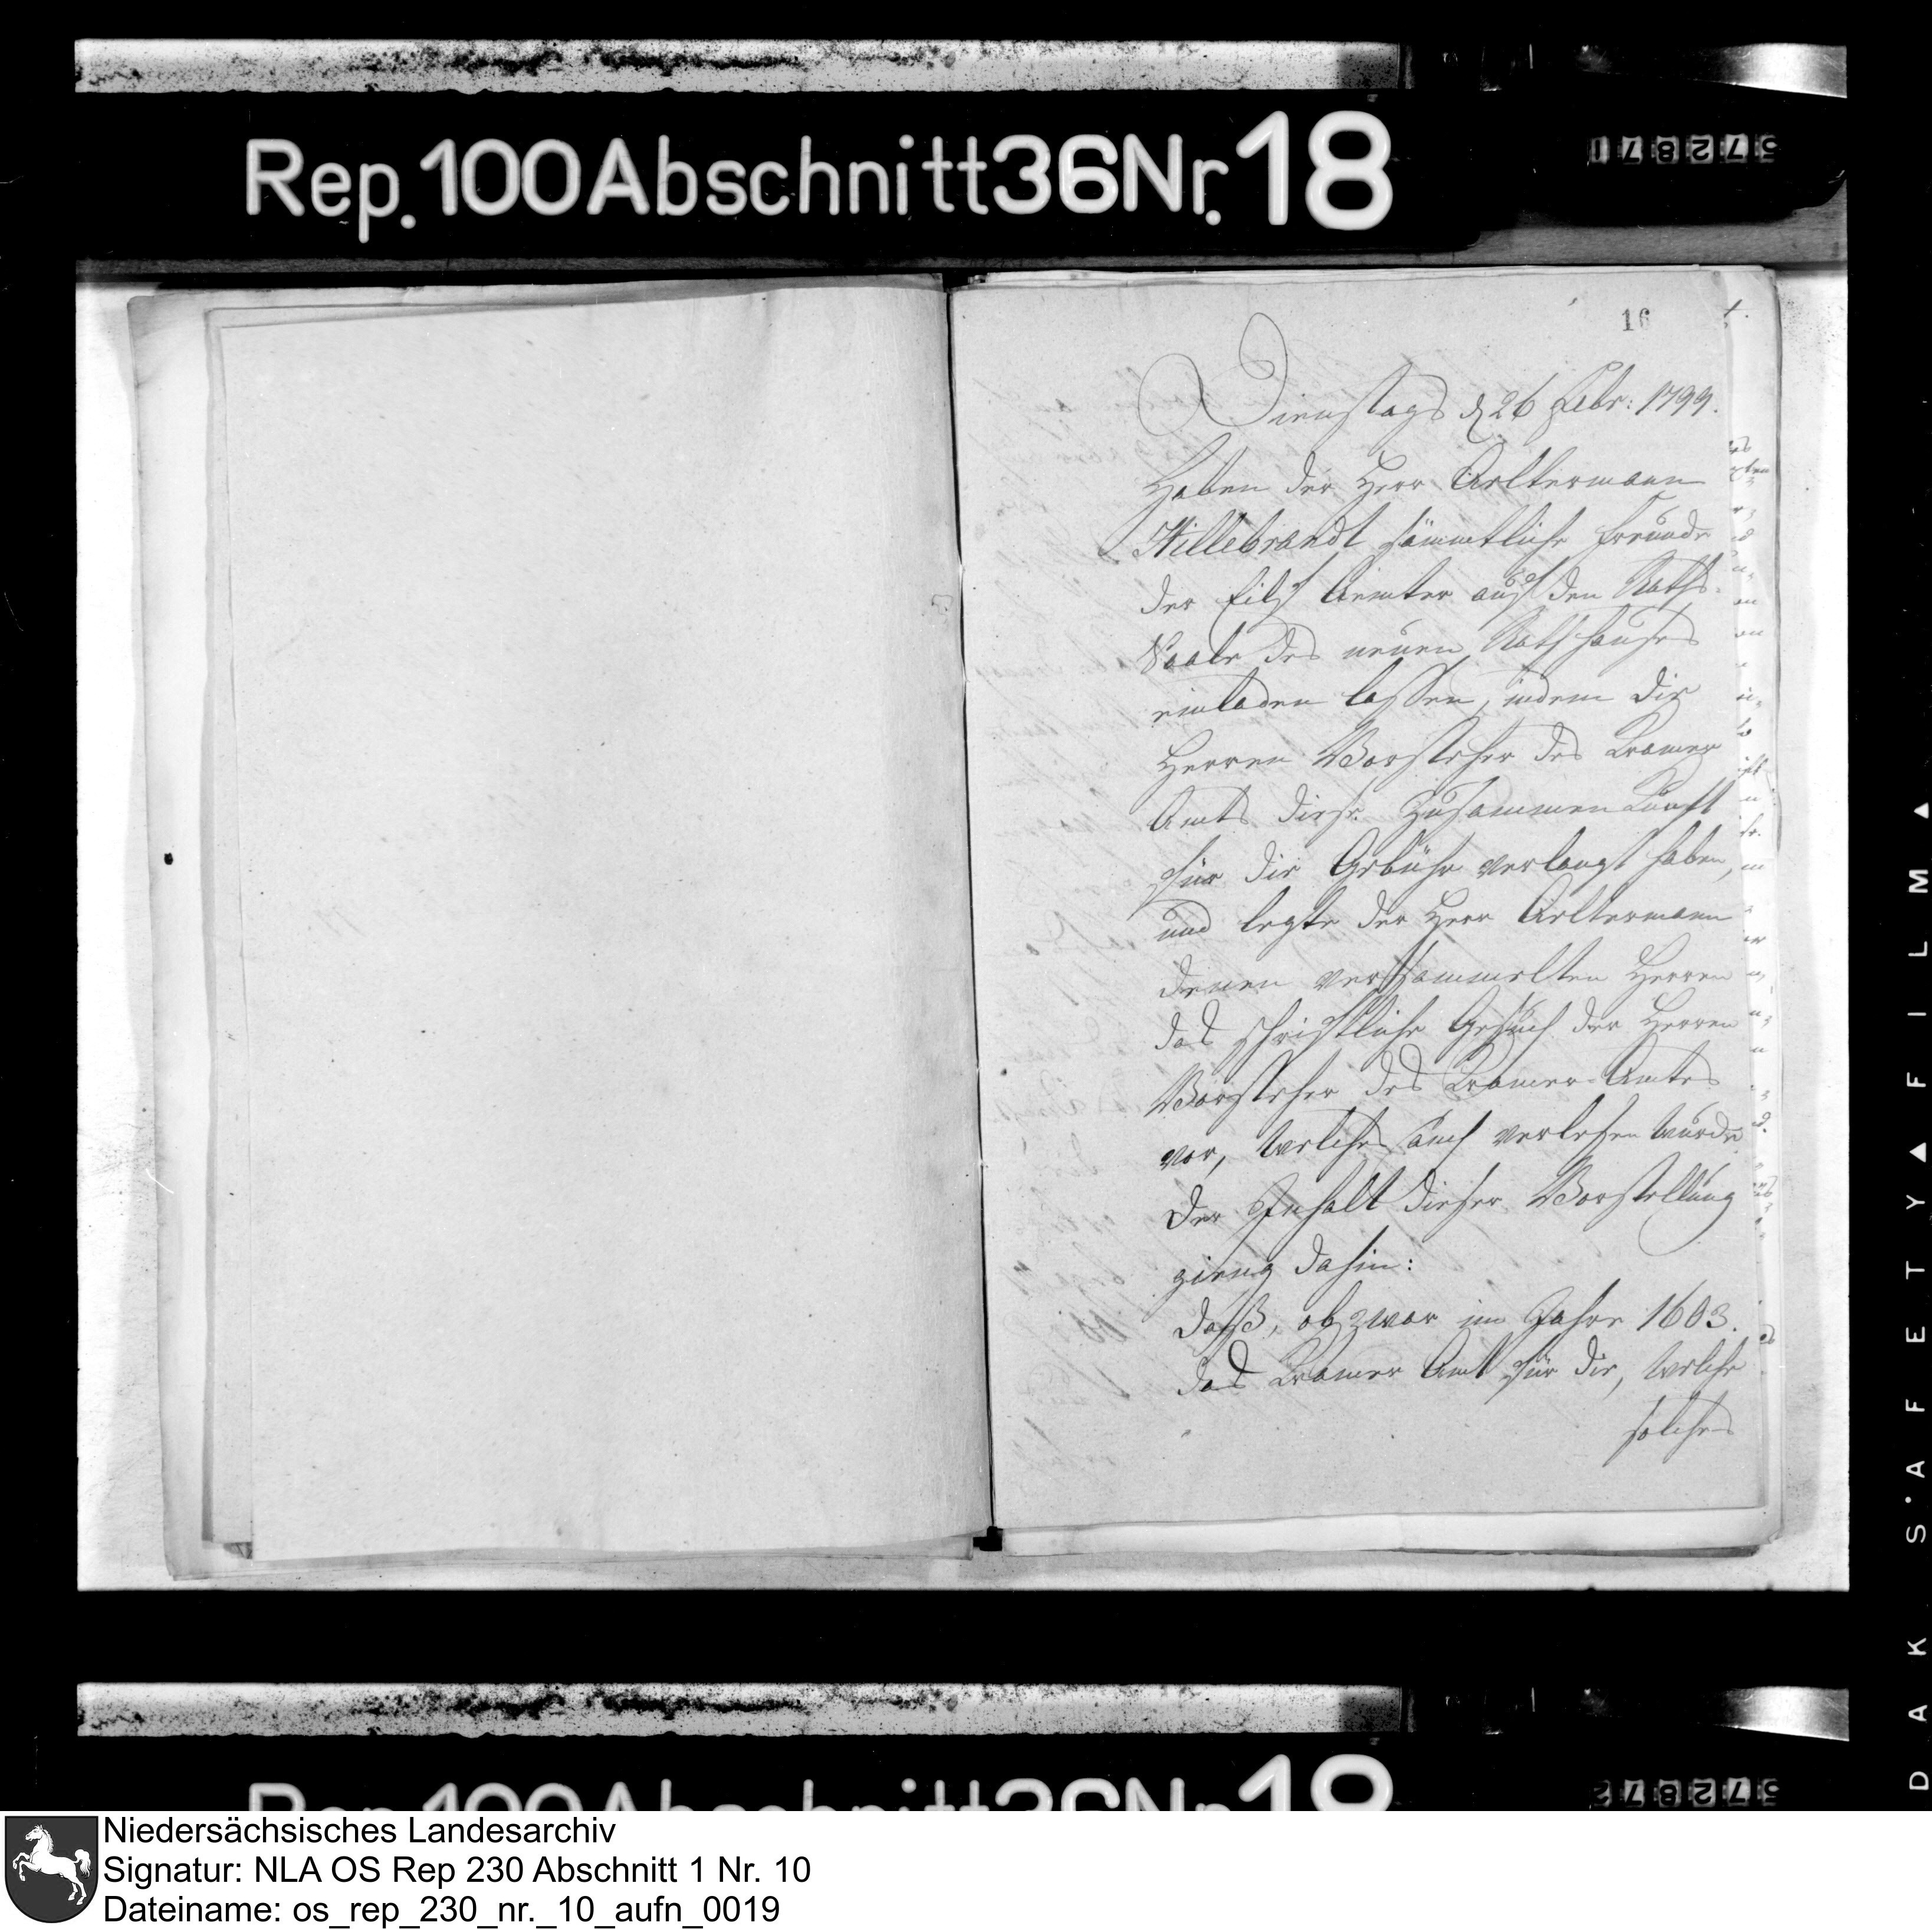 Rep. 100 Abschnitt 36 Nr. 18
16
Dienstags d 26 Febr: 1799.
Haben der Herr Aeltermann
Hillebrandt sämmtliche Freunde
der Eilf Aemter auf den Raths-
Saale des neuen Rathhauses
einladen lassen, indem die
Herren Vorsteher des Kramer
Amts diese Zusammenkunft
für die Gebühr verlangt haben,
und legte der Herr Aeltermann
denen versammelten Herren
das schriftliche Gesuch der Herren
Vorsteher des Kramer-Amtes
vor, welches auch verlesen wurde.
Der Inhalt dieser Vorstellung
gieng dahin:
daß, obzwar im Jahre 1603.
das Kramer Amt für die, welche
solches
DAK S.A F E T Y ▲ F I L M ▲
Niedersächsisches Landesarchiv
Signatur: NLA OS Rep 230 Abschnitt 1 Nr. 10
Dateiname: os_rep_230_nr._10_aufn_0019